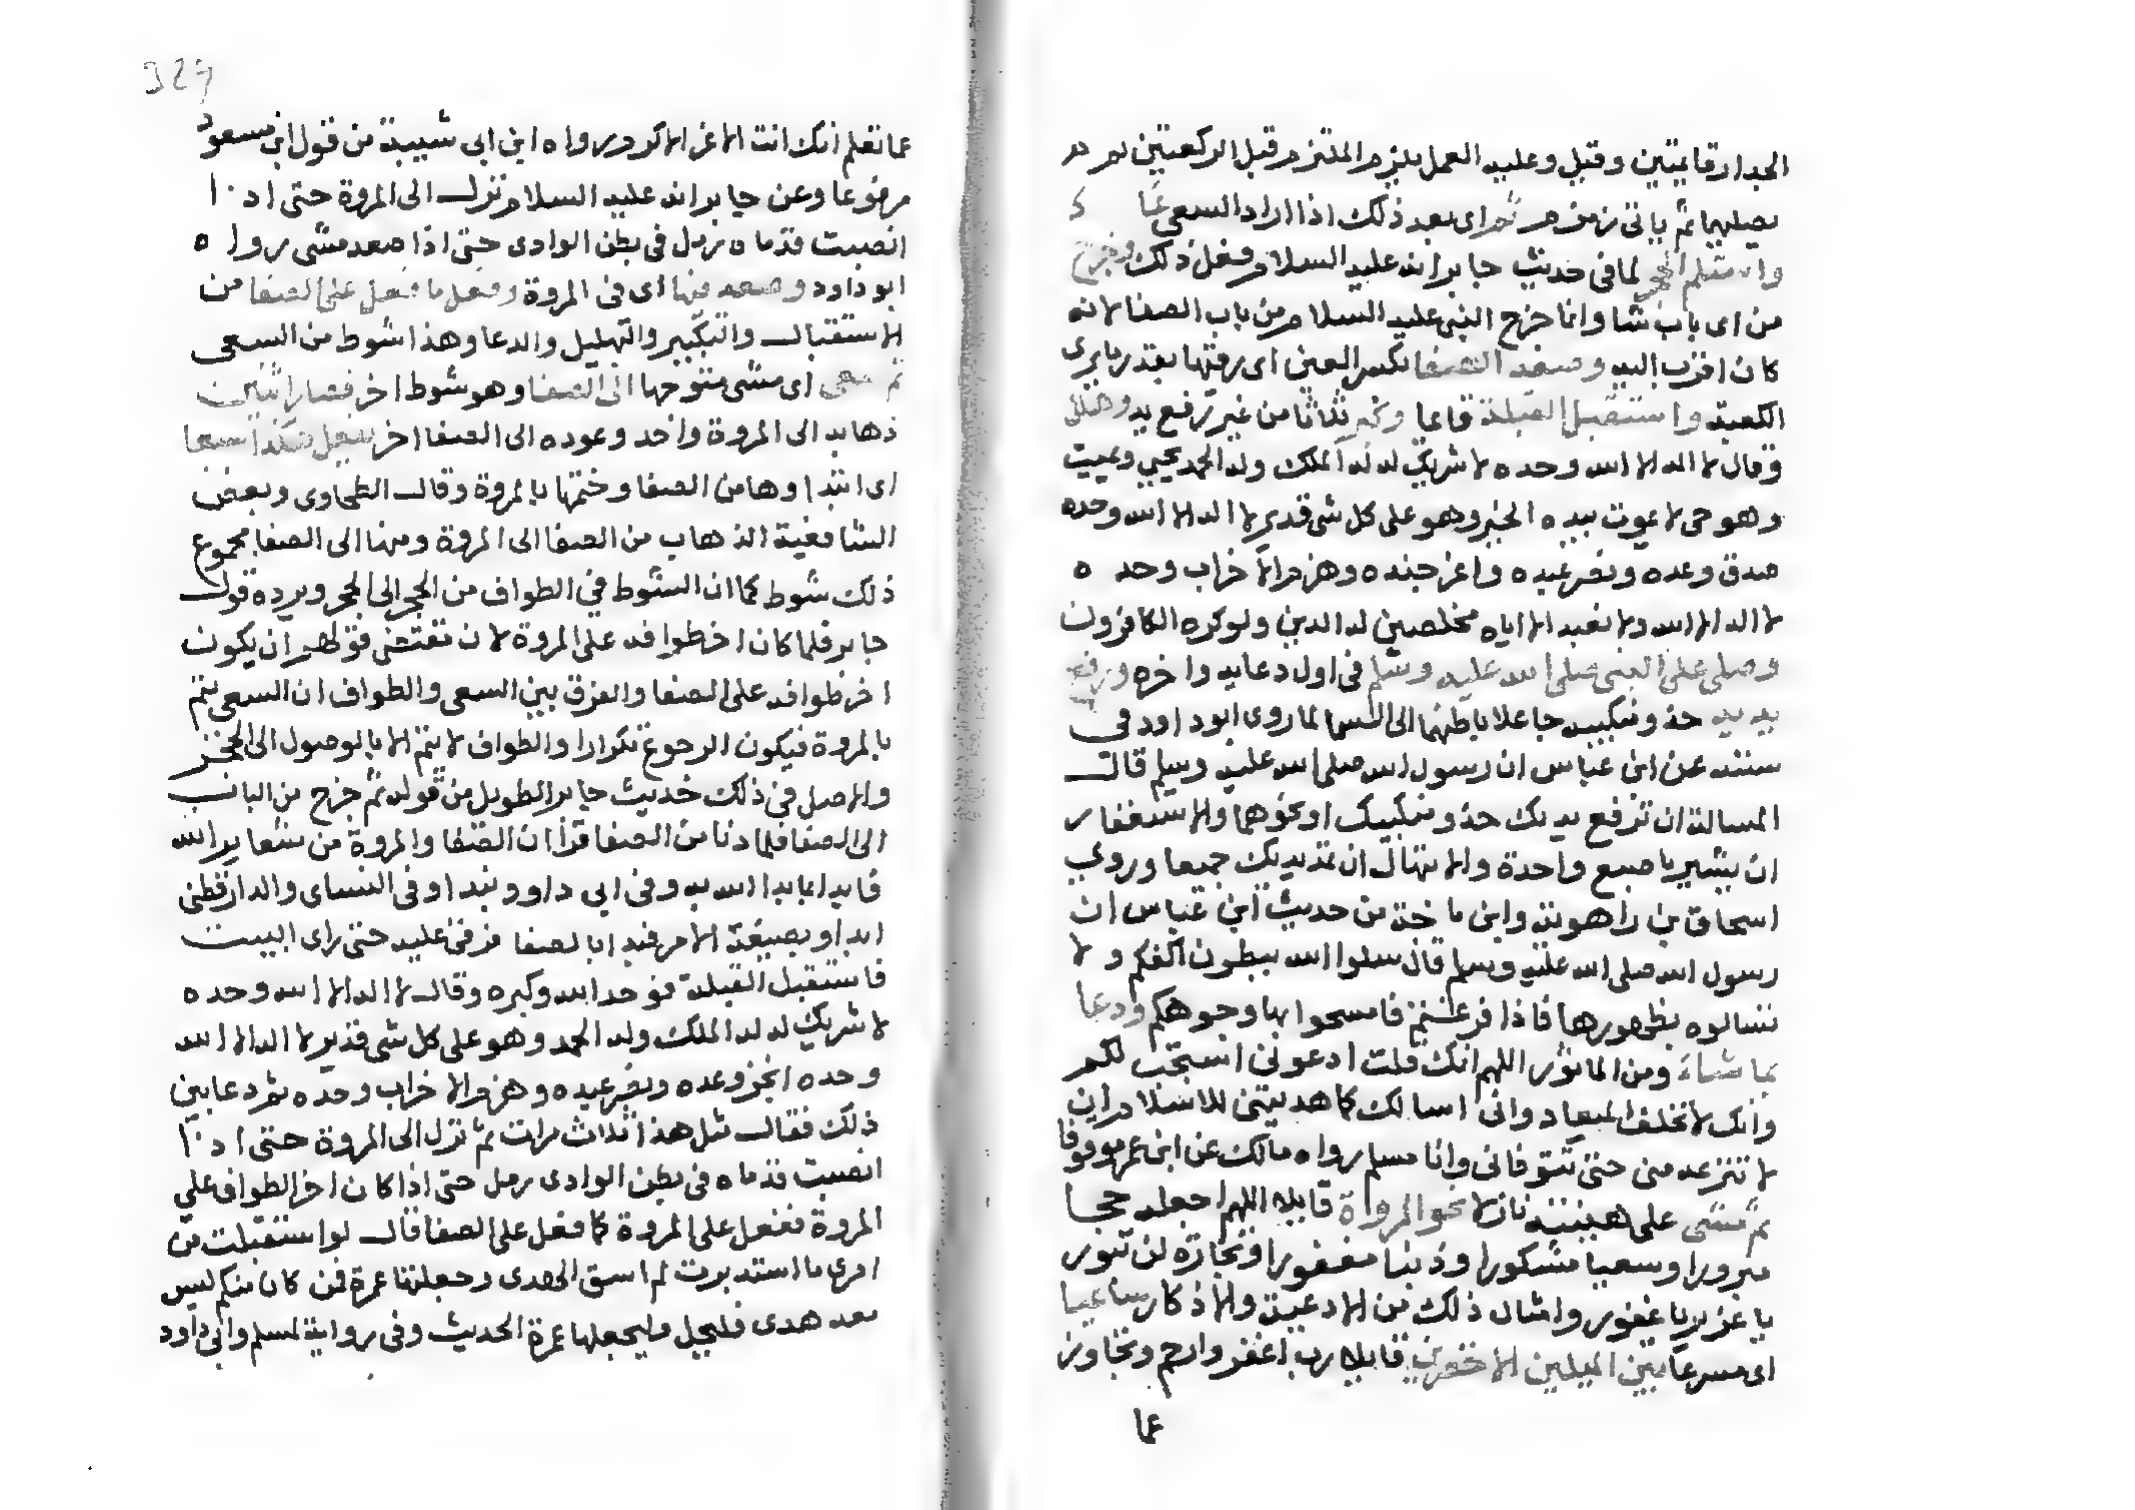 الجدار قايمتين وقيل وعليه العمل يلتزم الملتزم قبل الركعتين ثم
يصليهما ثم ياتي زمزم ثم اي بعد ذلك اذا اراد السعي عاد
واستلم الحجر لما في حديث جابر انه عليه السلام فعل ذلك وخرج
من اي باب شا وانما خرج النبي عليه السلام من باب الصفا لانه
كان اقرب اليه وصعد الصفا بكسر العين اي رقيها بقدر ما يرى
الكعبة واستقبل القبلة قايما وكبر ثلاثا من غير رفع يد وهلل
وقال لا اله الا الله وحده لا شريك له له الملك وله الحمد يحيي ويميت
وهو حي لا يموت بيده الخير وهو على كل شي قدير لا اله الا الله وحده
صدق وعده ونصر عبده واعز جنده وهزم الاحزاب وحده
لا اله الا الله ولا نعبد الا اياه مخلصين له الدين ولو كره الكافرون
وصلى على النبي صلى الله عليه وسلم في اول دعايه واخره ورفع
يديه حذو منكبيه جاعلا باطنهما الى السما لما روى ابو داود في
سننه عن ابن عباس ان رسول الله صلى الله عليه وسلم قال
المسالة ان ترفع يديك حذو منكبيك او نحوهما والاستغفار
ان يشير باصبع واحدة والابتهال ان تمد يديك جميعا وروى
اسحاق بن راهويه وابن ماجة من حديث ابن عباس ان
رسول الله صلى الله عليه وسلم قال سلوا الله ببطون اكفكم ولا
تسالوه بظهورها فاذا فرغتم فامسحوا بها وجوهكم ودعا
بما شاء ومن الماثور اللهم انك قلت ادعوني استجب لكم
وانك لا تخلف الميعاد واني اسالك كما هديتني للاسلام ان
لا تنزعه مني حتى تتوفاني وانا مسلم رواه مالك عن ابن عمر موقوفا
ثم مشى على هينته نازلا نحو المرواة قايلا اللهم اجعله حجا
مبرورا وسعيا مشكورا وذنبا مغفورا وتجارة لن تبور
يا عزيز يا غفور وامثال ذلك من الادعية والاذكار ساعيا
اي مسرعا بين الميلين الاخضرين قايلا رب اغفر وارحم وتجاوز
عما
عما تعلم انك انت الاعز الاكرم رواه ابن ابي شيبة من قول ابن مسعود
مرفوعا وعن جابر انه عليه السلام نزل الى المروة حتى اذا
انصبت قدماه رمل في بطن الوادي حتى اذا صعد مشى رواه
ابو داود وصعد فيها اي في المروة وفعل ما فعل على الصفا من
الاستقبال والتكبير والتهليل والدعا وهذا شوط من السعي
ثم سعى اي مشى متوجها الى الصفا وهو شوط اخر فصار اثنين
ذهابه الى المروة واحد وعوده الى الصفا اخر يفعل هكذا سبعا
اي ابتداوها من الصفا وختمها بالمروة وقال الطحاوي وبعض
الشافعية الذهاب من الصفا الى المروة ومنها الى الصفا مجموع
ذلك شوط كما ان الشوط في الطواف من الحجر الى الحجر ويرده قول
جابر فلما كان اخر طوافه على المروة لان مقتضى قولهم ان يكون
اخر طوافه على الصفا والفرق بين السعي والطواف ان السعي يتم
بالمروة فيكون الرجوع تكرارا والطواف لا يتم الا بالوصول الى الحجر
والاصل في ذلك حديث جابر الطويل من قوله ثم خرج من الباب
الى الصفا فلما دنا من الصفا قرا ان الصفا والمروة من شعاير الله
فابدا بما بدا الله به وفي ابي داوود نبدا وفي النساي والدارقطني
ابداو بصيغة الامر فبدا بالصفا فرقى عليه حتى راى البيت
فاستقبل القبلة فوحد الله وكبره وقال لا اله الا الله وحده
لا شريك له له الملك وله الحمد وهو على كل شي قدير لا اله الا الله
وحده انجز وعده ونصر عبده وهزم الاحزاب وحده ثم دعا بين
ذلك فقال مثل هذا ثلاث مرات ثم نزل الى المروة حتى اذا
انصبت قدماه في بطن الوادي رمل حتى اذا كان اخر الطواف على
المروة ففعل على المروة كما فعل على الصفا قال لو استقبلت من
امري ما استدبرت لم اسق الهدي وجعلتها عمرة فمن كان منكم ليس
معه هدي فليحل وليجعلها عمرة الحديث وفي رواية لمسلم وابي داود